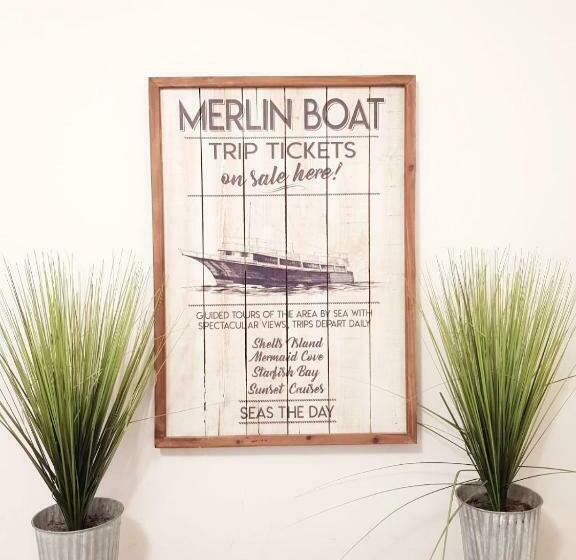 MERLIN BOAT
TRIP TICKETS
on sale here!
GUIDED TOURS OF THE AREA BY SEA WITH
SPECTACULAR VIEWS, TRIPS DEPART DAILY
Shells Island
Mermaid Cove
Starfish Bay
Sunset Cruises
SEAS THE DAY